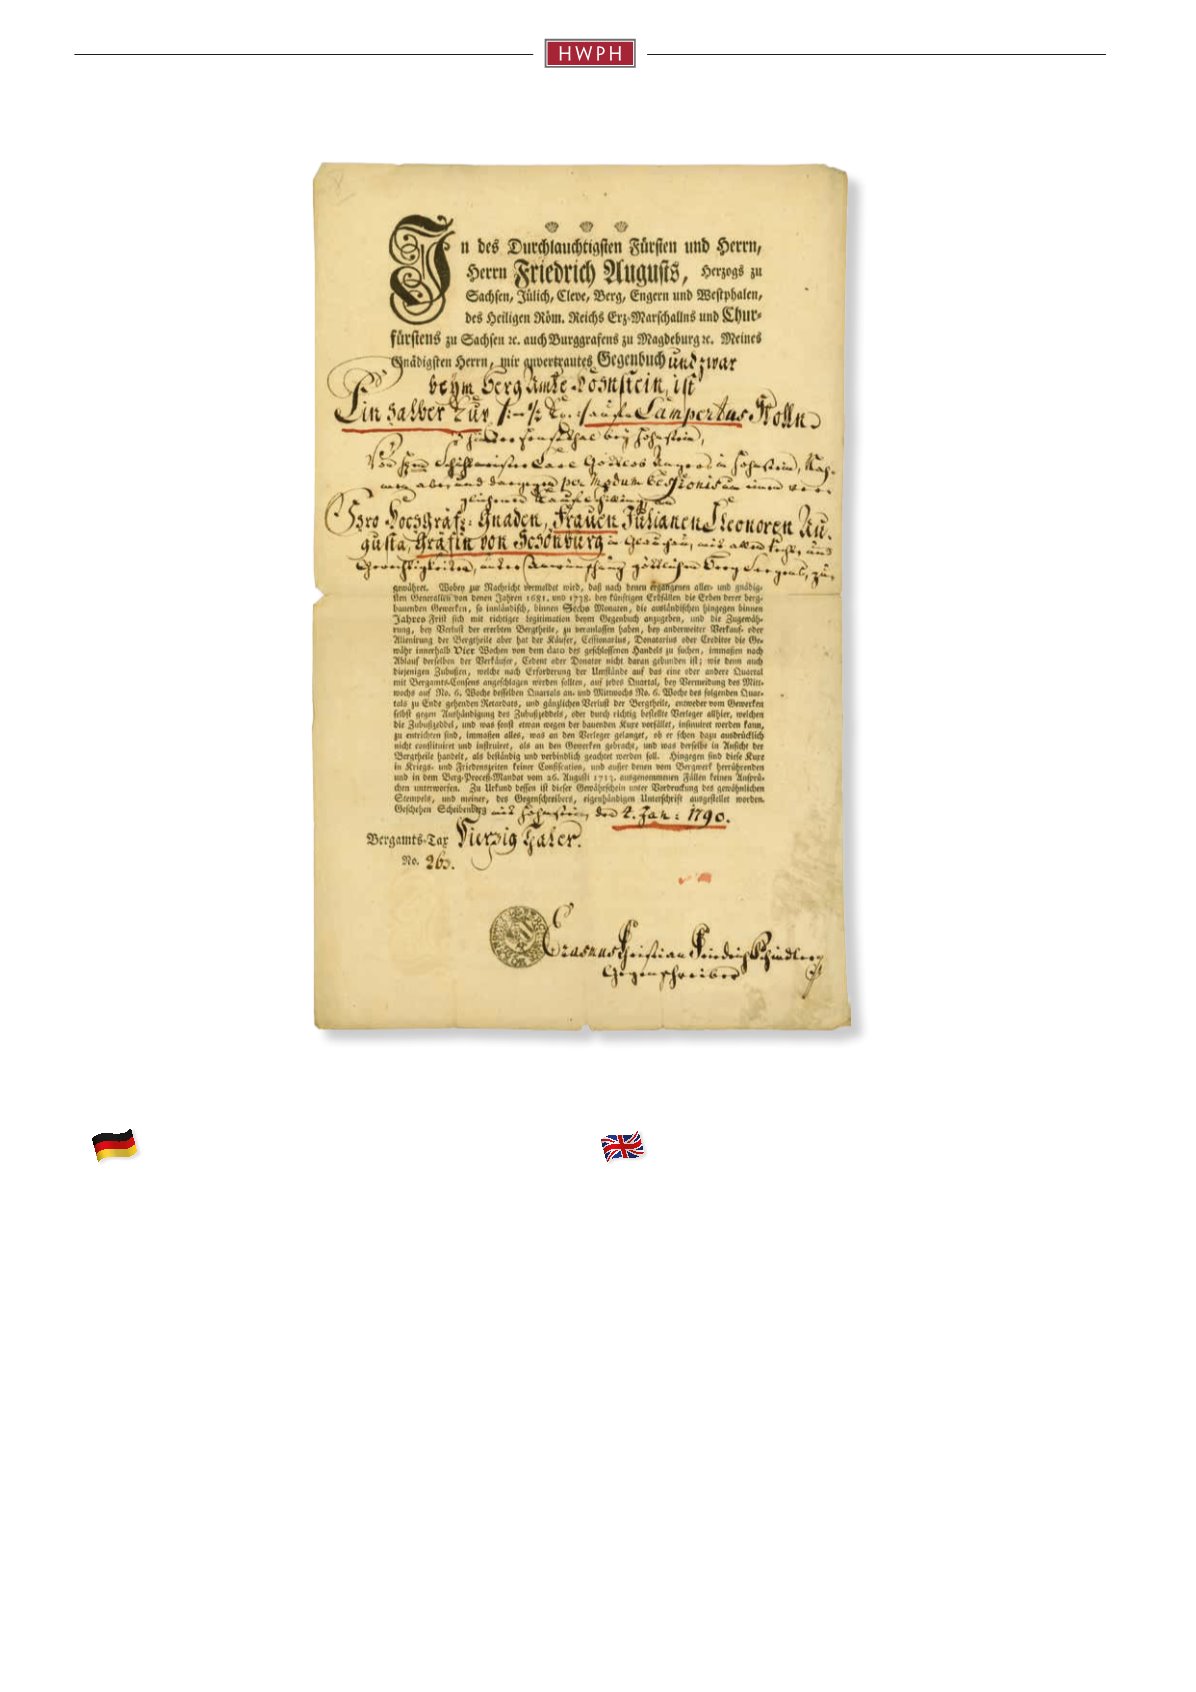 HWPH
In des Durchlauchtigsten Fürsten und Herrn,
Herrn Friedrich Augusts, Herzogs zu
Sachsen, Jülich, Cleve, Berg, Engern und Westphalen,
des Heiligen Röm. Reichs Erz-Marschallns und Chur-
fürstens zu Sachsen ꝛc. auch Burggrafens zu Magdeburg ꝛc. Meines
Gnädigsten Herrn, mir anvertrautes Gegenbuch und zwar
beym Berg Amte Hohnstein, ist
Ein halber Kux auf Lampertus Stolln
hinter bey Hohnstein,
Von Schichtmeister Carl Gottlob in Hohnstein,
aber und dargegen per modum Cessionis um einen
Ihro Hochgräfl: Gnaden, Frauen Julianen Eleonoren Au-
gusta, Gräfin von Schönburg in Glauchau, mit allen und
Gerechtigkeiten, unter Anwünschung göttlichen Berg Seegens, zu-
gewähret. Wobey zur Nachricht vermeldet wird, daß nach denen ergangenen aller- und gnädig-
sten Generalien von denen Jahren 1681. und 1738. bey künftigen Erbfällen die Erben derer berg-
bauenden Gewerken, so innländisch, binnen Sechs Monaten, die ausländischen hingegen binnen
Jahres Frist sich mit richtiger Legitimation beym Gegenbuch anzugeben, und die Zugewäh-
rung, bey Verlust der ererbten Bergtheile, zu veranlassen haben, bey anderweiter Verkauf- oder
Alienirung der Bergtheile aber hat der Käufer, Cessionarius, Donatarius oder Creditor die Ge-
währ innerhalb Vier Wochen von dem dato des geschlossenen Handels zu suchen, immaßen nach
Ablauf derselben der Verkäufer, Cedent oder Donator nicht daran gebunden ist; wie denn auch
diejenigen Zubußen, welche nach Erforderung der Umstände auf das eine oder andere Quartal
mit Bergamts-Consens angeschlagen werden sollten, auf jedes Quartal, bey Vermeidung des Mitt-
wochs auf No. 6. Woche desselben Quartals an- und Mittwochs No. 6. Woche des folgenden Quar-
tals zu Ende gehenden Retardats, und gänzlichen Verlust der Bergtheile, entweder vom Gewerken
selbst gegen Aushändigung des Zubußzeddels, oder durch richtig bestellte Verleger allhier, welchen
die Zubußzeddel, und was sonst etwan wegen der bauenden Kuxe vorfället, insinuiret werden kann,
zu entrichten sind, immaßen alles, was an den Verleger gelanget, ob er schon dazu ausdrücklich
nicht constituiret und instruiret, als an den Gewerken gebracht, und was derselbe in Ansicht der
Bergtheile handelt, als beständig und verbindlich geachtet werden soll. Hingegen sind diese Kuxe
in Kriegs- und Friedenszeiten keiner Confiscation, und außer denen vom Bergwerk herrührenden
und in dem Berg-Proceß-Mandat vom 26. Augusti 1713. ausgenommenen Fällen keinen Ansprü-
chen unterworfen. Zu Urkund dessen ist dieser Gewährschein unter Vordruckung des gewöhnlichen
Stempels, und meiner, des Gegenschreibers, eigenhändigen Unterschrift ausgestellet worden.
Geschehen Scheibenberg mit Hohnstein, den 2. Jan: 1790.
Bergamts-Tax Vierzig Taler.
No. 263.
Erasmus Christian Friedrich Schindler
Gegenschreiber